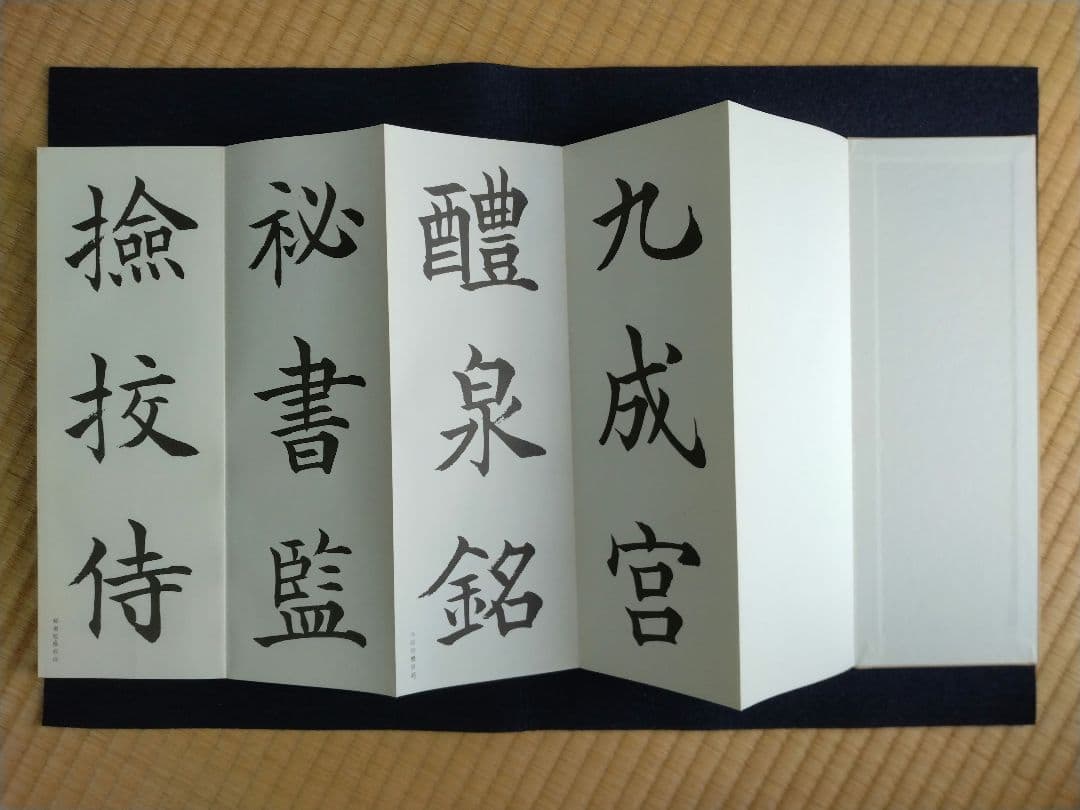 九成宮
醴泉銘
秘書監
撿挍侍